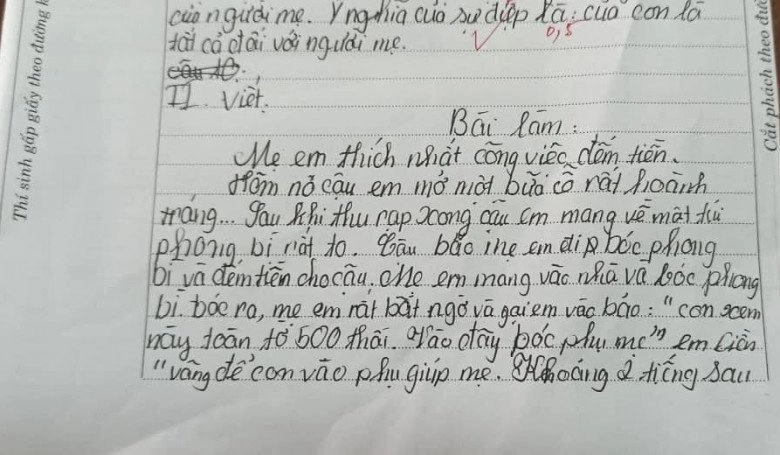 của người mẹ. Ý nghĩa của sự điệp là: của con là
tất cả đối với người mẹ. 0,5
câu 10:
II. Viết.
Bài làm:
Mẹ em thích nhất công việc đếm tiền.
Hôm nó cậu em mở một bữa cỗ rất hoành
tráng... Sau khi thu rạp xong cậu em mang về một túi
phong bì rất to. Cậu bảo mẹ em đip bóc phong
bì và đếm tiền cho cậu. Mẹ em mang vào nhà và bóc phong
bì. bóc ra, mẹ em rất bất ngờ và gọi em vào bảo: "con xem
này toàn tờ 500 thôi. Vào đây bóc phụ mẹ" em liền
"vâng để con vào phụ giúp mẹ. Khoảng 2 tiếng sau
Thí sinh gấp giấy theo đường k
Cắt phách theo đườ